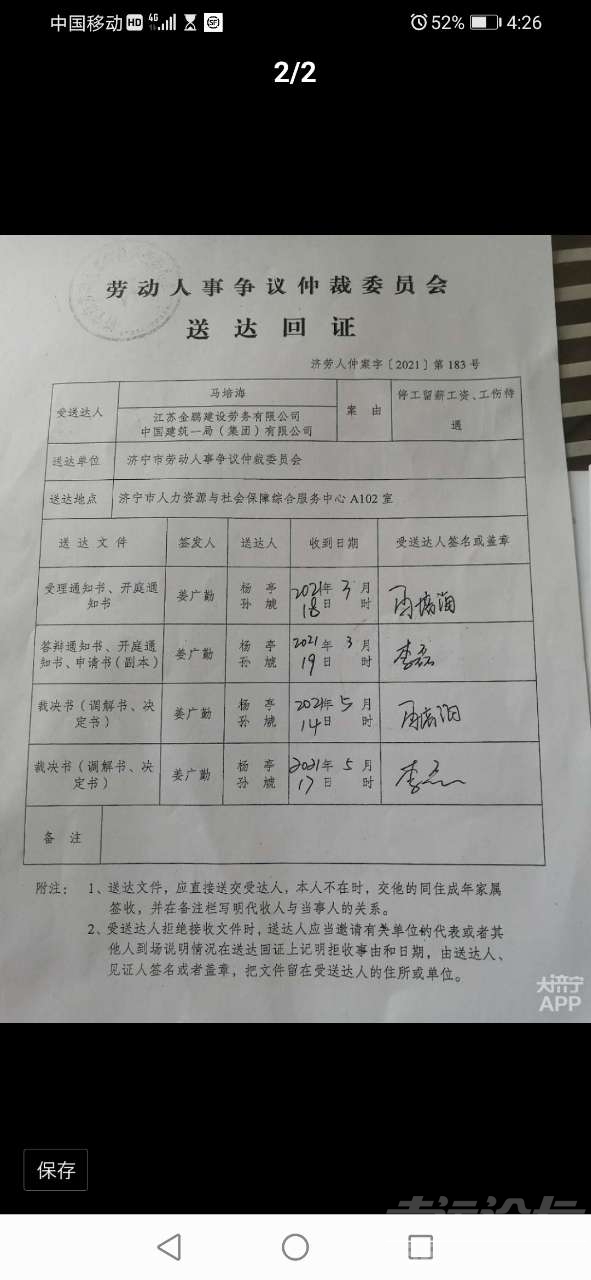 中国移动 HD 4G 52% 4:26
2/2
劳动人事争议仲裁委员会
送达回证
济劳人仲案字〔2021〕第183号
受送达人
马培海
江苏金鹏建设劳务有限公司
中国建筑一局(集团)有限公司
案 由
停工留薪工资、工伤待
遇
送达单位 济宁市劳动人事争议仲裁委员会
送达地点 济宁市人力资源与社会保障综合服务中心 A102 室
送 达 文 件 签发人 送达人 收到日期 受送达人签名或盖章
受理通知书、开庭通
知书
姜广勤
杨 亭
孙
2021年 3 月
18日 时
答辩通知书、开庭通
知书、申请书(副本)
姜广勤
杨 亭
孙
2021年 3 月
19日 时
李磊
裁决书(调解书、决
定书)
姜广勤
杨 亭
孙
2021年 5 月
14日 时
裁决书(调解书、决
定书)
姜广勤
杨 亭
孙
2021年 5 月
17日 时
李磊
备 注
附注: 1、送达文件,应直接送交受达人,本人不在时,交他的同住成年家属
签收,并在备注栏写明代收人与当事人的关系。
2、受送达人拒绝接收文件时,送达人应当邀请有关单位的代表或者其
他人到场说明情况在送达回证上记明拒收事由和日期,由送达人、
见证人签名或者盖章,把文件留在受送达人的住所或单位。
大济宁
APP
保存